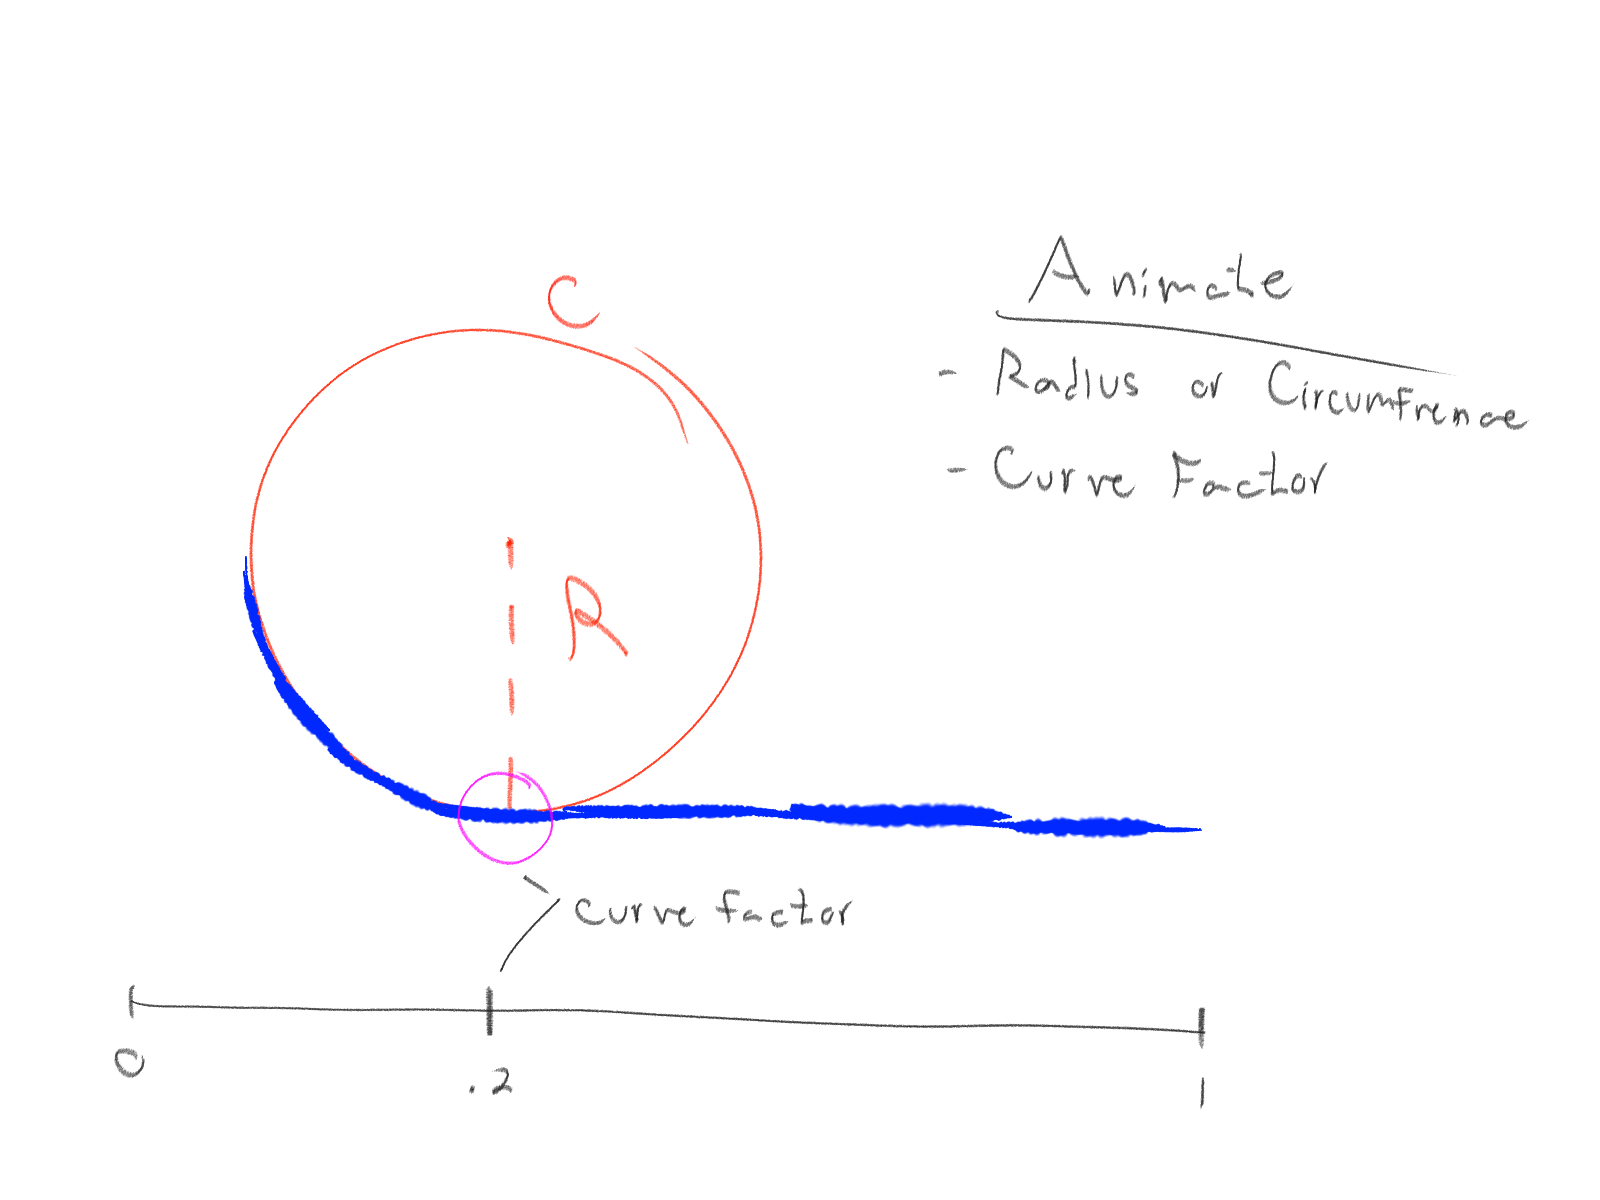 C
Animate
- Radius or Circumfrence
- Curve Factor
R
curve factor
0
.2
1